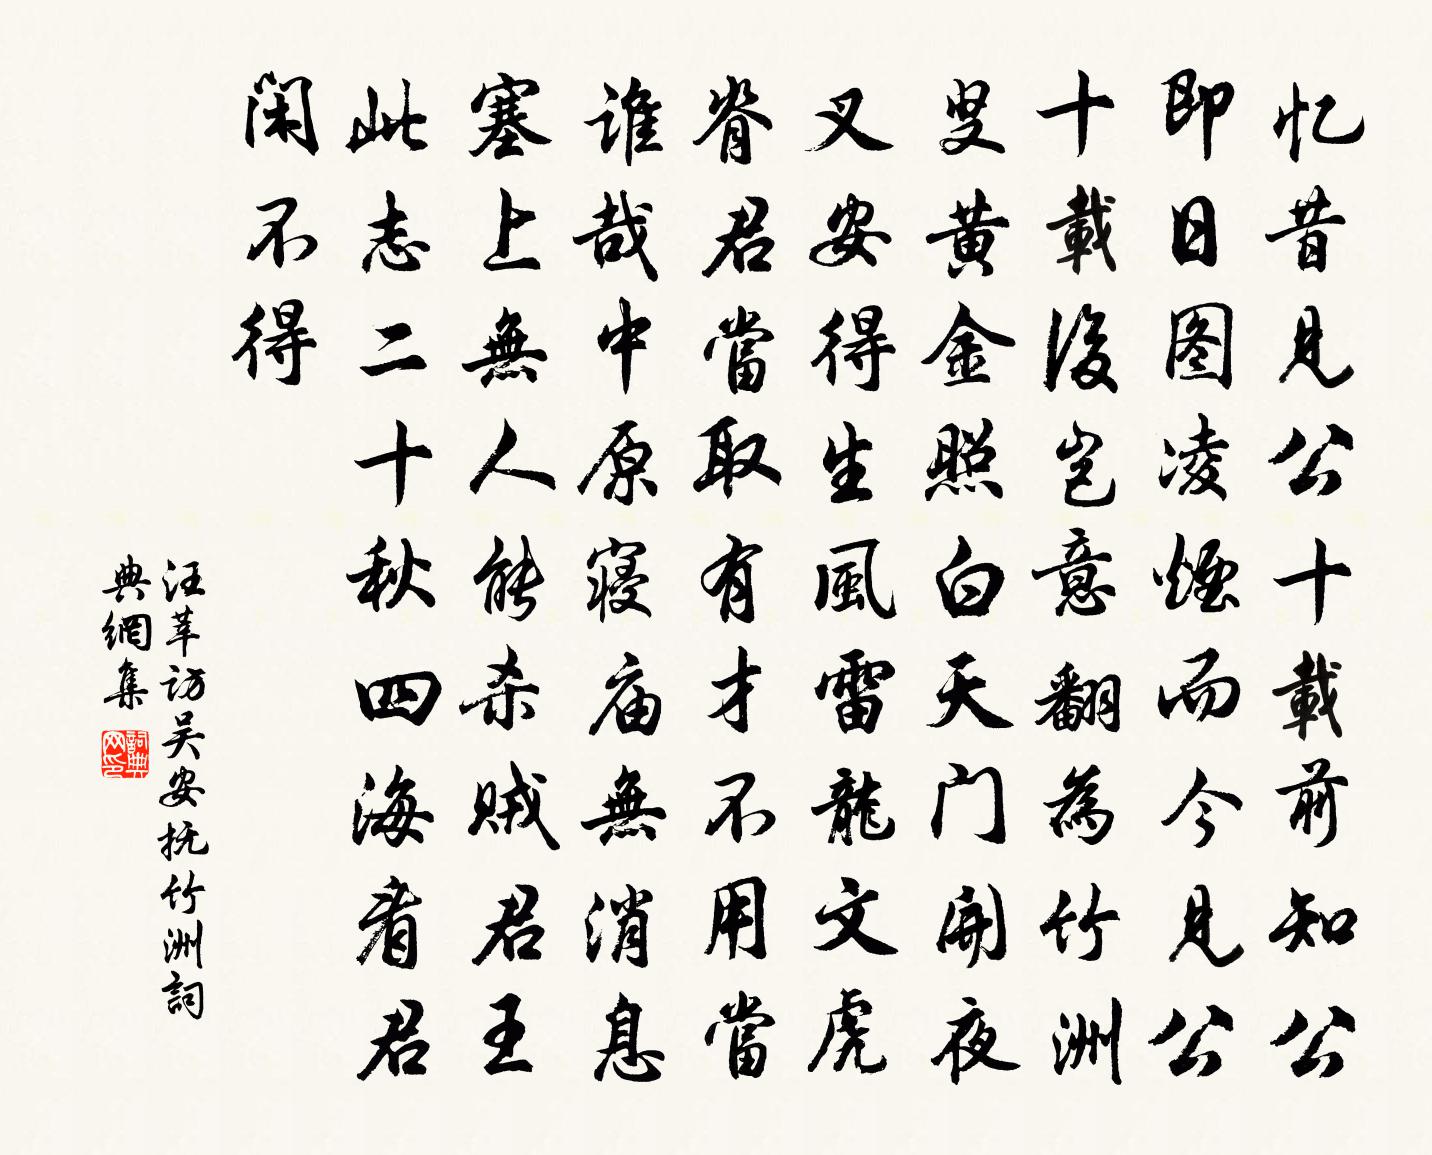 忆昔見公十載前知公
即日图凌煙而今見公
十載後岂意翻為竹洲
叟黄金照白天门開夜
叉安得生風雷龍文虎
脊君當取有才不用當
谁哉中原寝庙無消息
塞上無人能杀贼君王
此志二十秋四海看君
闲不得
汪莘访吴安抚竹洲詞
典網集
詞典
网印